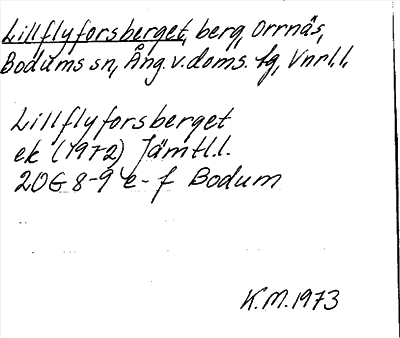 Lillflyforsberget, berg, Orrnäs,
Bodums sn, Ång.v.doms. lg, Vnrl.l.
Lillflyforsberget
ek (1972) Jämtl.l.
20G 8-9 e-f Bodum
K.M.1973